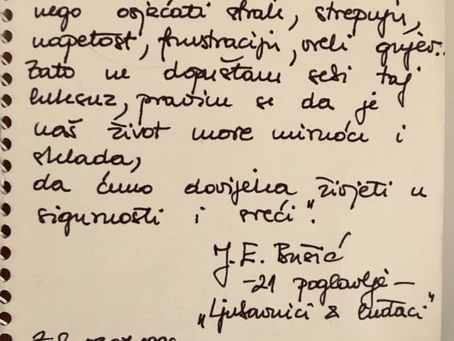 nego osjećati strah, strepnju,
napetost, frustraciju, vreli gnjev..
Zato ne dopuštam sebi taj
luksuz, pravim se da je
naš život more mirnoće i
sklada,
da ćemo dovijeka živjeti u
sigurnosti i sreći".
J. E. Bušić
-21 poglavlje-
"Ljubavnici & luđaci"